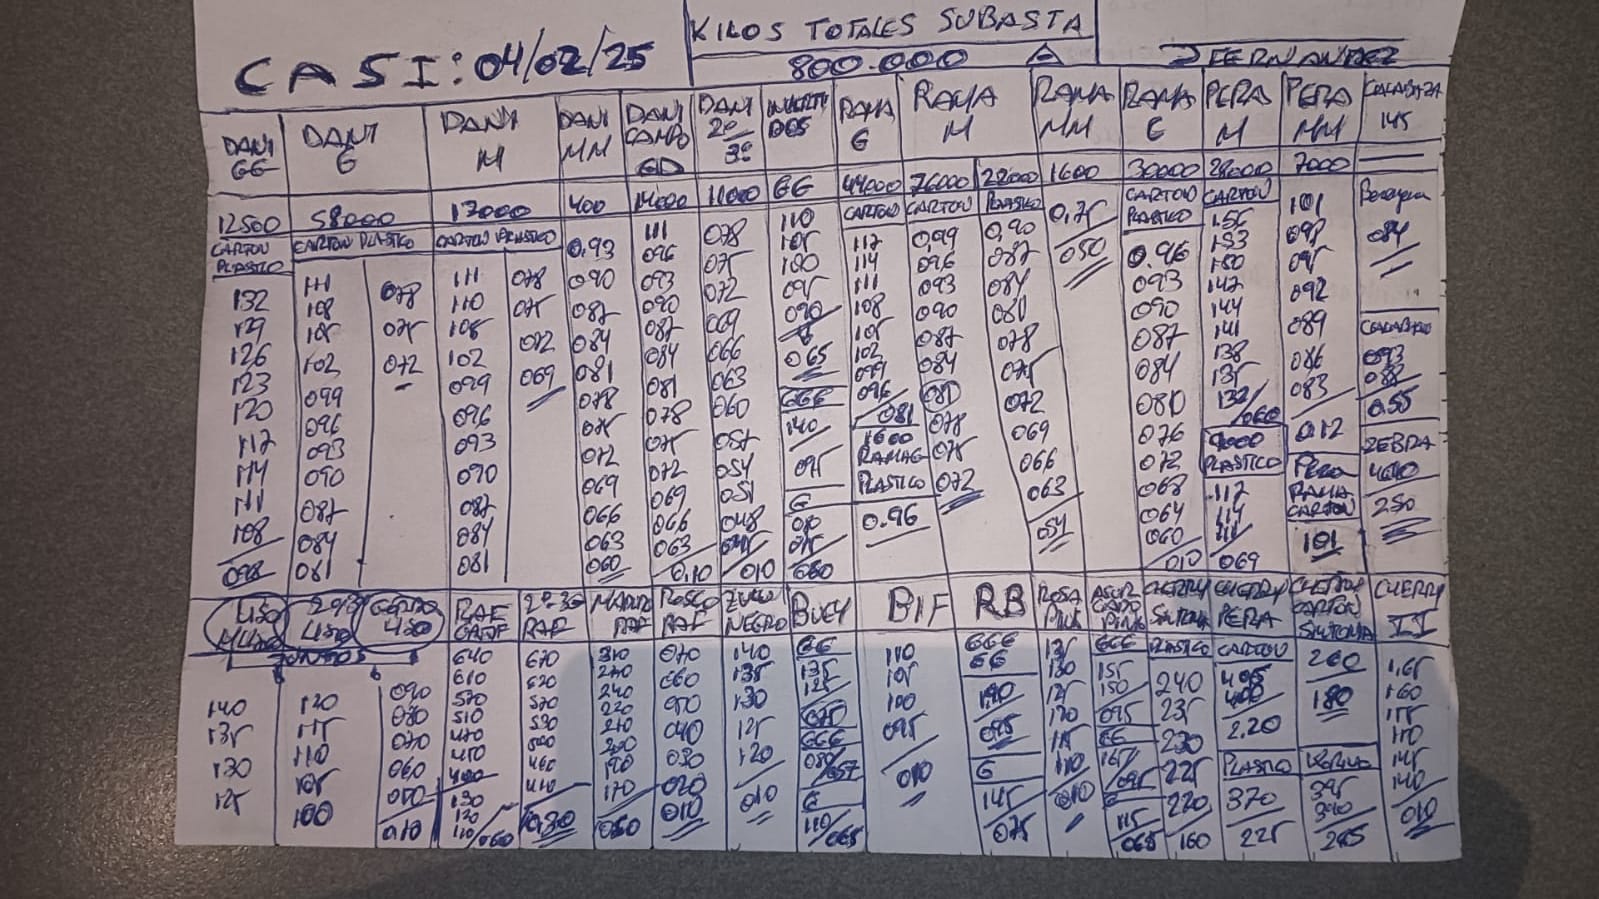 KILOS TOTALES SUBASTA
CASI: 04/02/25
800.000
J FERNANDEZ
DANI GG
DANI G
DANI M
DANI MM
DANI CAMPO GD
DANI 2º 3º
RAMA G
RAMA M
RAMA MM
RAMA G
PERA M
PERA MM
CALABAZA 145
12500
58000
13000
400
14000
11000
GG
44000
76000
22000
1600
30000
28000
7000
CARTON PLASTICO
CARTON PLASTICO
CARTON PLASTICO
CARTON
CARTON
PLASTICO
CARTON PLASTICO
CARTON
132
129
126
123
120
117
114
111
108
098
111
108
105
102
099
096
093
090
087
084
081
078
075
072
111
110
105
102
099
096
093
090
087
084
081
078
075
072
069
0,93
090
087
084
081
078
075
072
069
066
063
060
111
096
093
090
087
084
081
078
075
072
069
066
063
0,10
078
075
072
069
066
063
060
057
054
051
048
045
010
110
105
100
095
090
065
GGG
140
095
G
060
117
114
111
108
105
102
099
096
081
1600
RAMA G
PLASTICO
0.96
0,99
096
093
090
087
084
081
078
075
072
0,90
087
084
081
078
075
072
069
066
063
054
0,75
050
0.96
093
090
087
084
080
076
072
068
064
060
010
156
153
150
147
144
141
138
135
132
060
PLASTICO
117
114
111
069
101
098
095
092
089
086
083
0.12
PERA
RAMA
CARTON
101
084
093
088
0.55
ZEBRA
250
LISO
LISO
LISO
JUNTOS
RAF
2º-3º
RAF
RAF
ROSCO
RAF
NEGRO
BUEY
BIF
RB
ROSA
PINK
CHERRY
SINTONIA
CHERRY
PERA
CHERRY
CARTON
SINTONIA
CHERRY
II
140
135
130
125
120
115
110
105
100
090
080
070
060
050
010
640
610
570
510
470
450
400
130
120
110
060
670
620
570
530
500
460
410
0,30
240
220
210
200
190
170
070
060
050
040
030
020
010
140
135
130
125
120
010
GG
135
125
GGG
G
110
065
110
105
100
095
010
GGG
GG
095
G
145
075
135
130
125
120
115
110
010
GGG
155
150
095
GG
165
095
G
115
065
PLASTICO
240
235
230
225
220
160
CARTON
405
400
2.20
PLASTICO
370
225
260
180
395
390
265
1,65
160
155
150
145
140
010